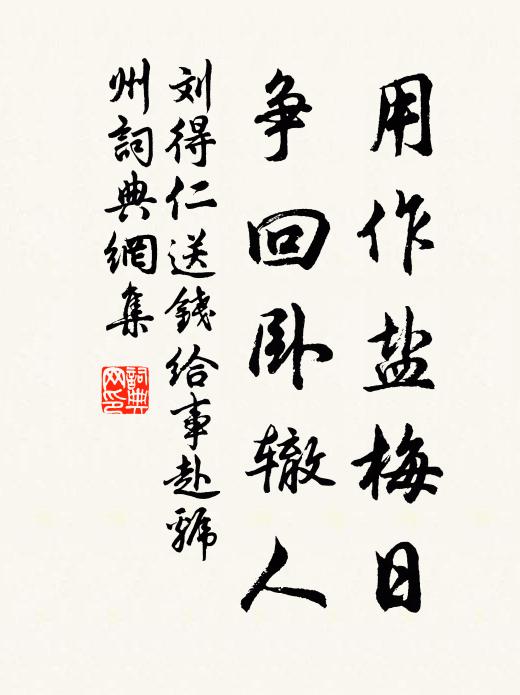 用作盐梅日
争回卧辙人
刘得仁送錢给事赴虢
州詞典網集
詞典
网印